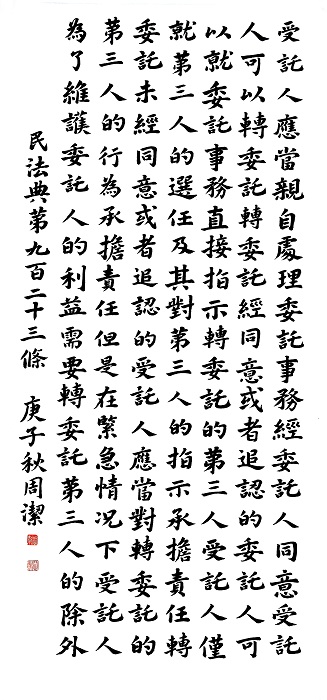 受託人應當親自處理委託事務經委託人同意受託
人可以轉委託轉委託經同意或者追認的委託人可
以就委託事務直接指示轉委託的第三人受託人僅
就第三人的選任及其對第三人的指示承擔責任轉
委託未經同意或者追認的受託人應當對轉委託的
第三人的行為承擔責任但是在緊急情况下受託人
為了維護委託人的利益需要轉委託第三人的除外
民法典第九百二十三條 庚子秋周潔